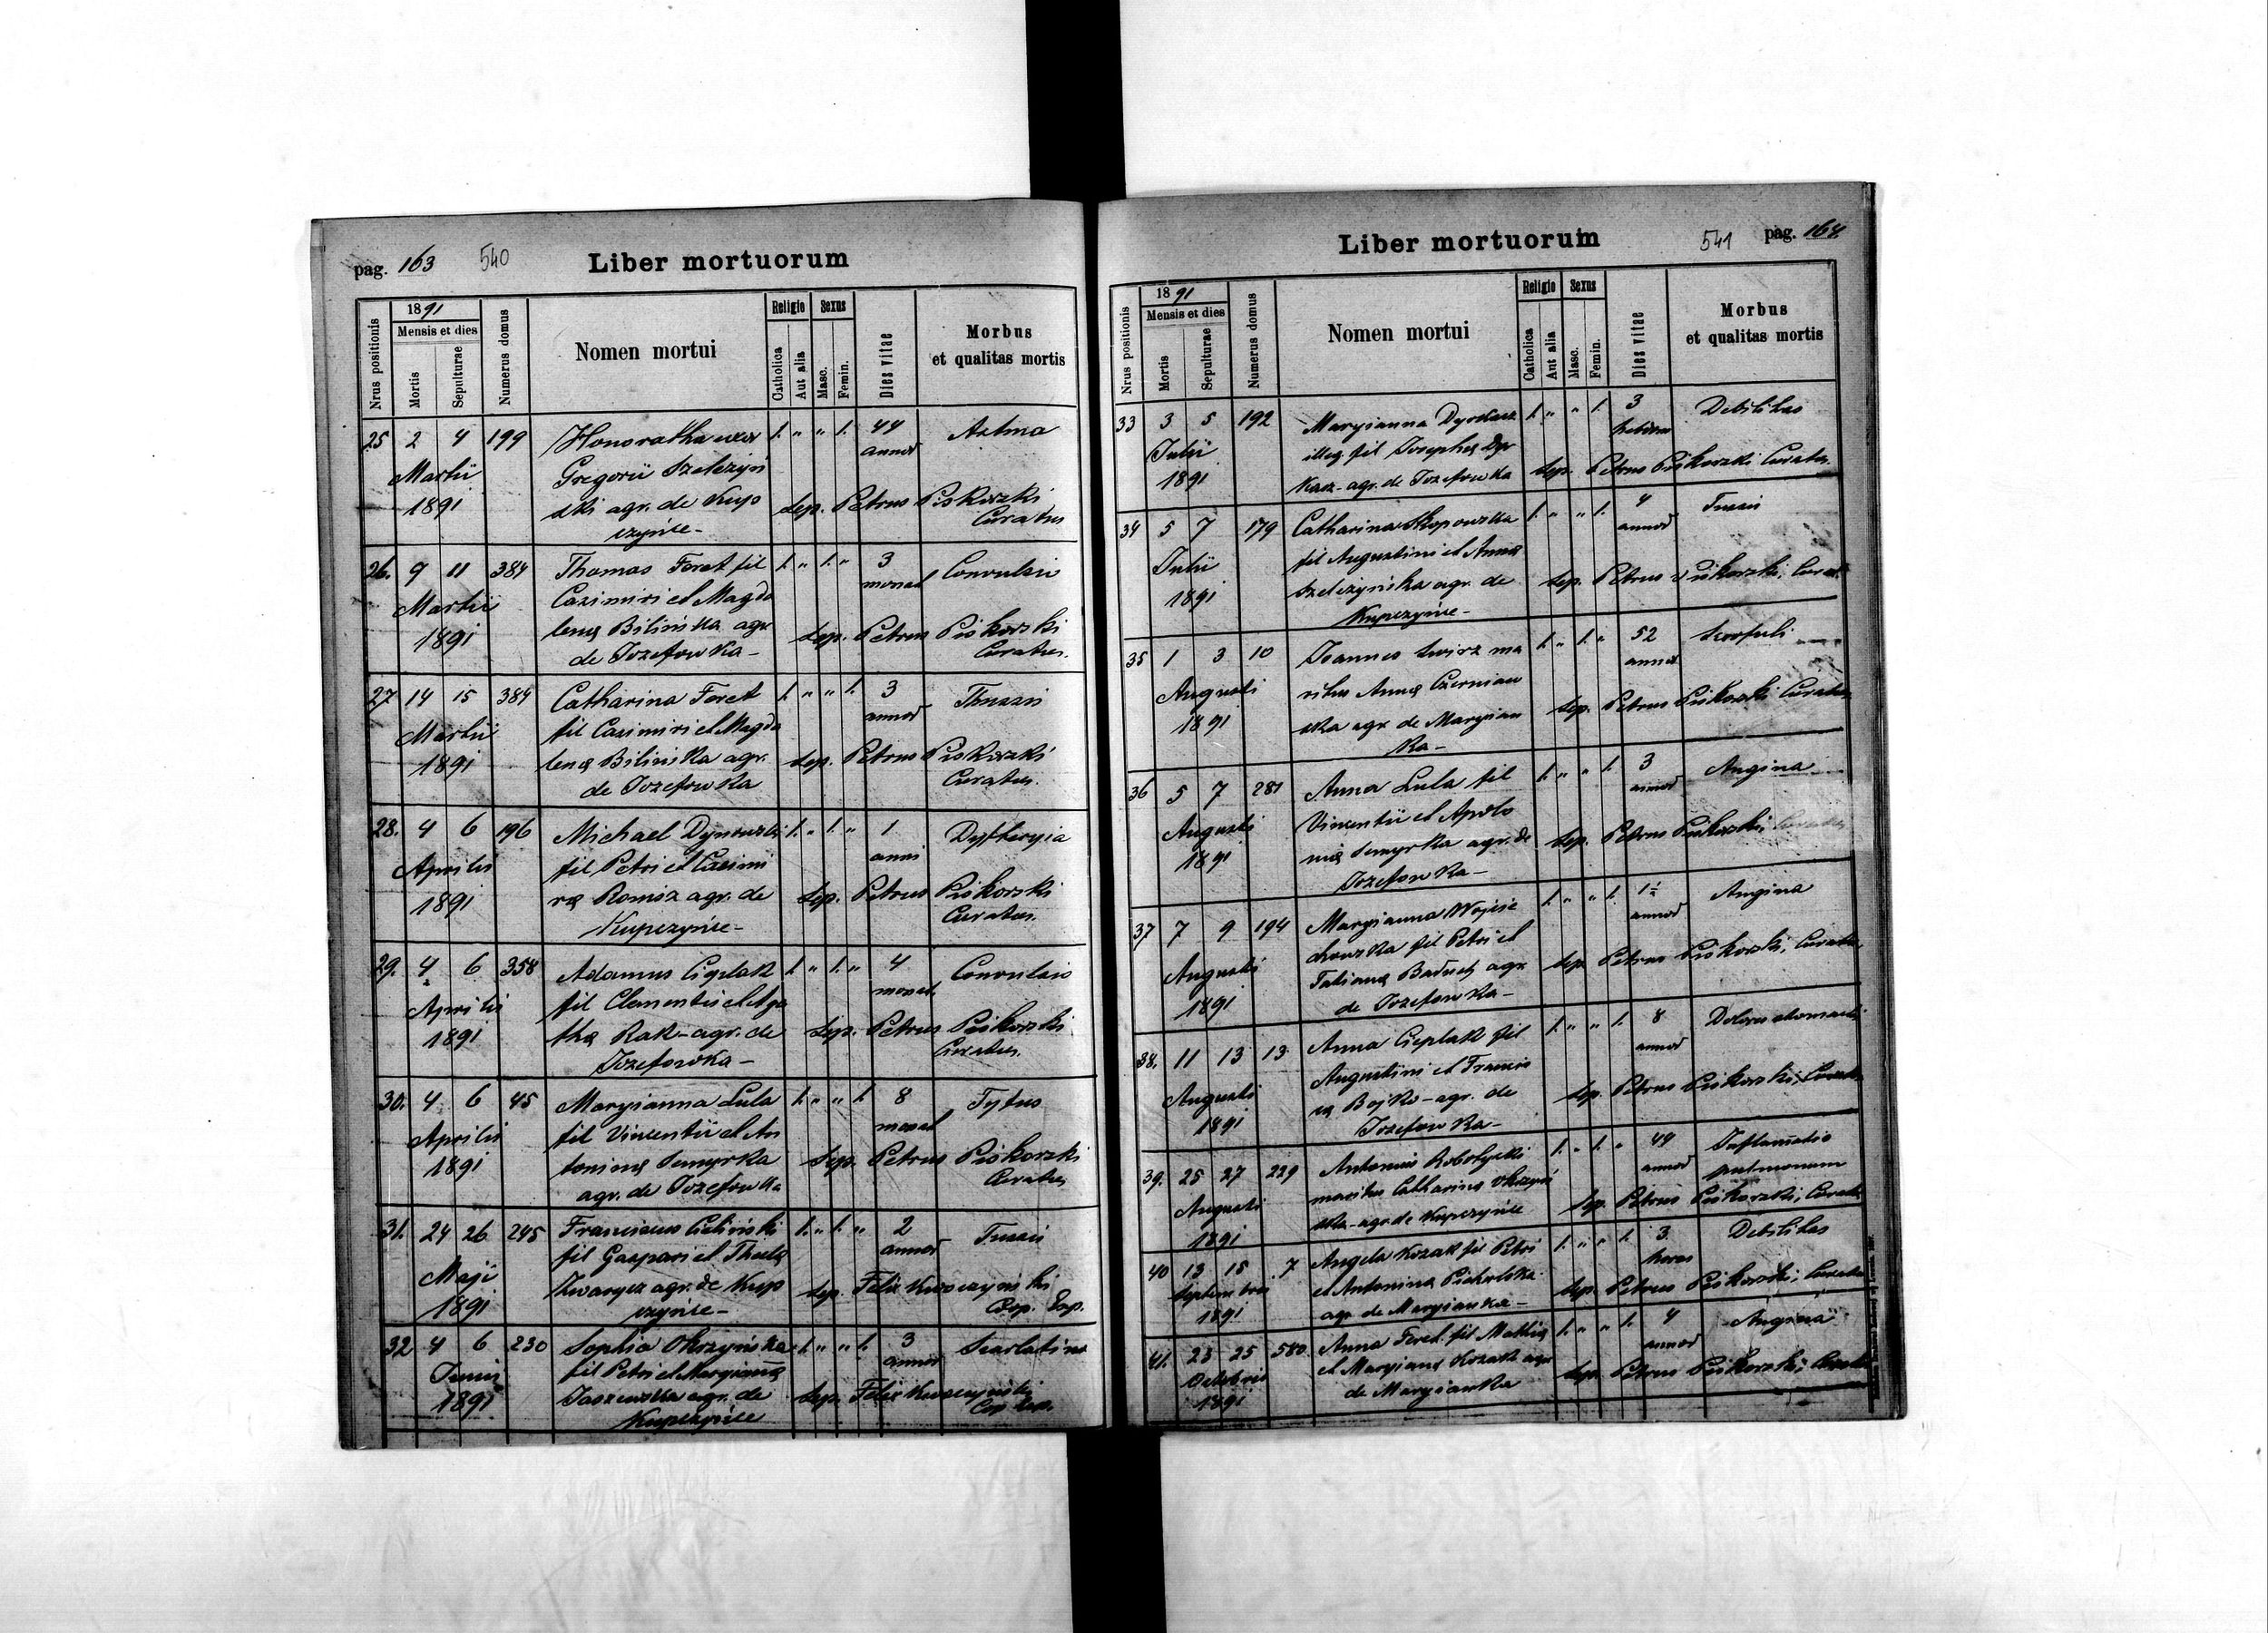 pag. 163 540 Liber mortuorum
Nrus positionis 1891 Mensis et dies Mortis Sepulturae Numerus domus Nomen mortui Religio Catholica Aut alia Sexus Masc. Femin. Dies vitae Morbus et qualitas mortis
25 2 4 199 Honoratha uxor 1. " " 1. 44 Astma
Martii Gregorii Szeliżyń annor
1891 ski agr. de Kup sep. Petrus Piskorski
czyńce - Curatus
26. 9 11 384 Thomas Foret fil 1. " 1. " 3 Convulsii
Martii Casimiri et Magda monat
1891 lena Bilińska agr sep. Petrus Piskorski
de Jozefowka - Curatus.
27 14 15 384 Catharina Foret 1. " " 1. 3 Thussis
Martii fil Casimiri et Magda annor
1891 lena Bilińska agr. sep. Petrus Piskorski
de Jozefowka Curatus.
28. 4 6 196 Michael Dynowski 1. " 1. " 1 Dyfteryia
Aprilis fil Petri et Casimi anni
1891 ra Romisz agr. de sep. Petrus Piskorski
Kupczyńce - Curatus.
29. 4 6 358 Adamus Cieplak 1. " 1. " 4 Convulsio
Aprilis fil Clementis et Aga monat.
1891 tha Rak - agr. de sep. Petrus Piskorski
Jozefowka - Curatus.
30. 4 6 45 Maryianna Lula 1. " " 1. 8 Tyfus
Aprilis fil Vincentii et An monat
1891 tonina Semyrka sep. Petrus Piskorski
agr. de Jozefowka Curatus
31. 24 26 245 Franciscus Cieliński 1. " 1. " 2 Tussis
Maji fil Gaspari et Thecla annor
1891 Zwarycz agr. de Kup sep. Felix Kwaczyński
czyńce - Coop. Exp.
32 4 6 230 Sophia Okrzyńska 1. " " 1. 3 Scarlatina
Junii fil Petri et Maryianna annor
1891 Jaszewska agr. de sep. Felix Kwaczyński
Kupczyńce Cop Exp.
Liber mortuorum 541 pag. 164.
Nrus positionis 1891 Mensis et dies Mortis Sepulturae Numerus domus Nomen mortui Religio Catholica Aut alia Sexus Masc. Femin. Dies vitae Morbus et qualitas mortis
33 3 5 192 Maryianna Dyrkacz 1. " " 1. 3 Debilitas
Julii illeg fil Josepha Dyr hebdom
1891 kacz - agr. de Jozefowka sep. Petrus Piskorski Curatus
34 5 7 179 Catharina Skopowska 1. " " 1. 4 Tussis
Julii fil Augustini et Anna annor
1891 Szeliżyńska agr. de sep. Petrus Piskorski, Curat.
Kupczyńce -
35 1 3 10 Joannes Swirz ma 1. " 1. " 52 Scrofuli
Augusti ritus Anna Czerniaw annor
1891 ska agr de Maryian sep. Petrus Piskorski Curatus
ka -
36 5 7 281 Anna Lula fil 1. " " 1. 3 Angina
Augusti Vincentii et Apolo annor
1891 nia Semyrka agr. de sep. Petrus Piskorski, Curatus
Jozefowka -
37 7 9 194 Maryianna Wojcie 1. " " 1. 1½ Angina
Augusti chowska fil Petri et annor
1891 Tatiana Baduch agr sep Petrus Piskorski, Curatus
de Jozefowka -
38. 11 13 13 Anna Cieplak fil 1. " " 1. 8 Dolores stomachi
Augusti Augustini et Francis annor
1891 ca Bojko - agr. de sep. Petrus Piskorski, Curatus
Jozefowka -
39. 25 27 229 Antonius 1. " 1. " 44 Inflamatio
Augusti maritus Catharina Okrzyń annor pulmonum
1891 ska - agr de Kupczyńce sep. Petrus Piskorski, Curatus
40 13 15 7 Angela Kozak fil Petri 1. " " 1. 3. Debilitas
Septembris et Antonina horas
1891 agr de Maryianka - sep. Petrus Piskorski, Curatus
41. 23 25 580 Anna Foret fil Mathia 1. " " 1. 4 Angina
Octobris et Maryiana Kozak agr annor
1891 de Maryianka sep. Petrus Piskorski, Curatus